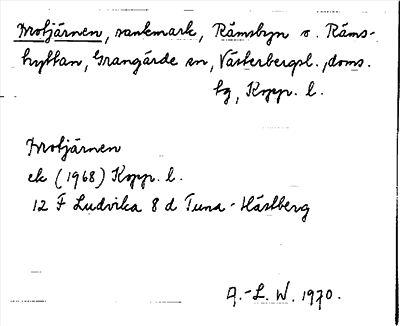 Mrotjärnen, sankmark, Rämsbyn o. Räms-
hyttan, Grangärde sn, Västerbergsl., doms.
hg, Kopp. l.
Mrotjärnen
ek (1968) Kopp. l.
12 F Ludvika 8 d Tuna-Hästberg
A.-L. W. 1970.